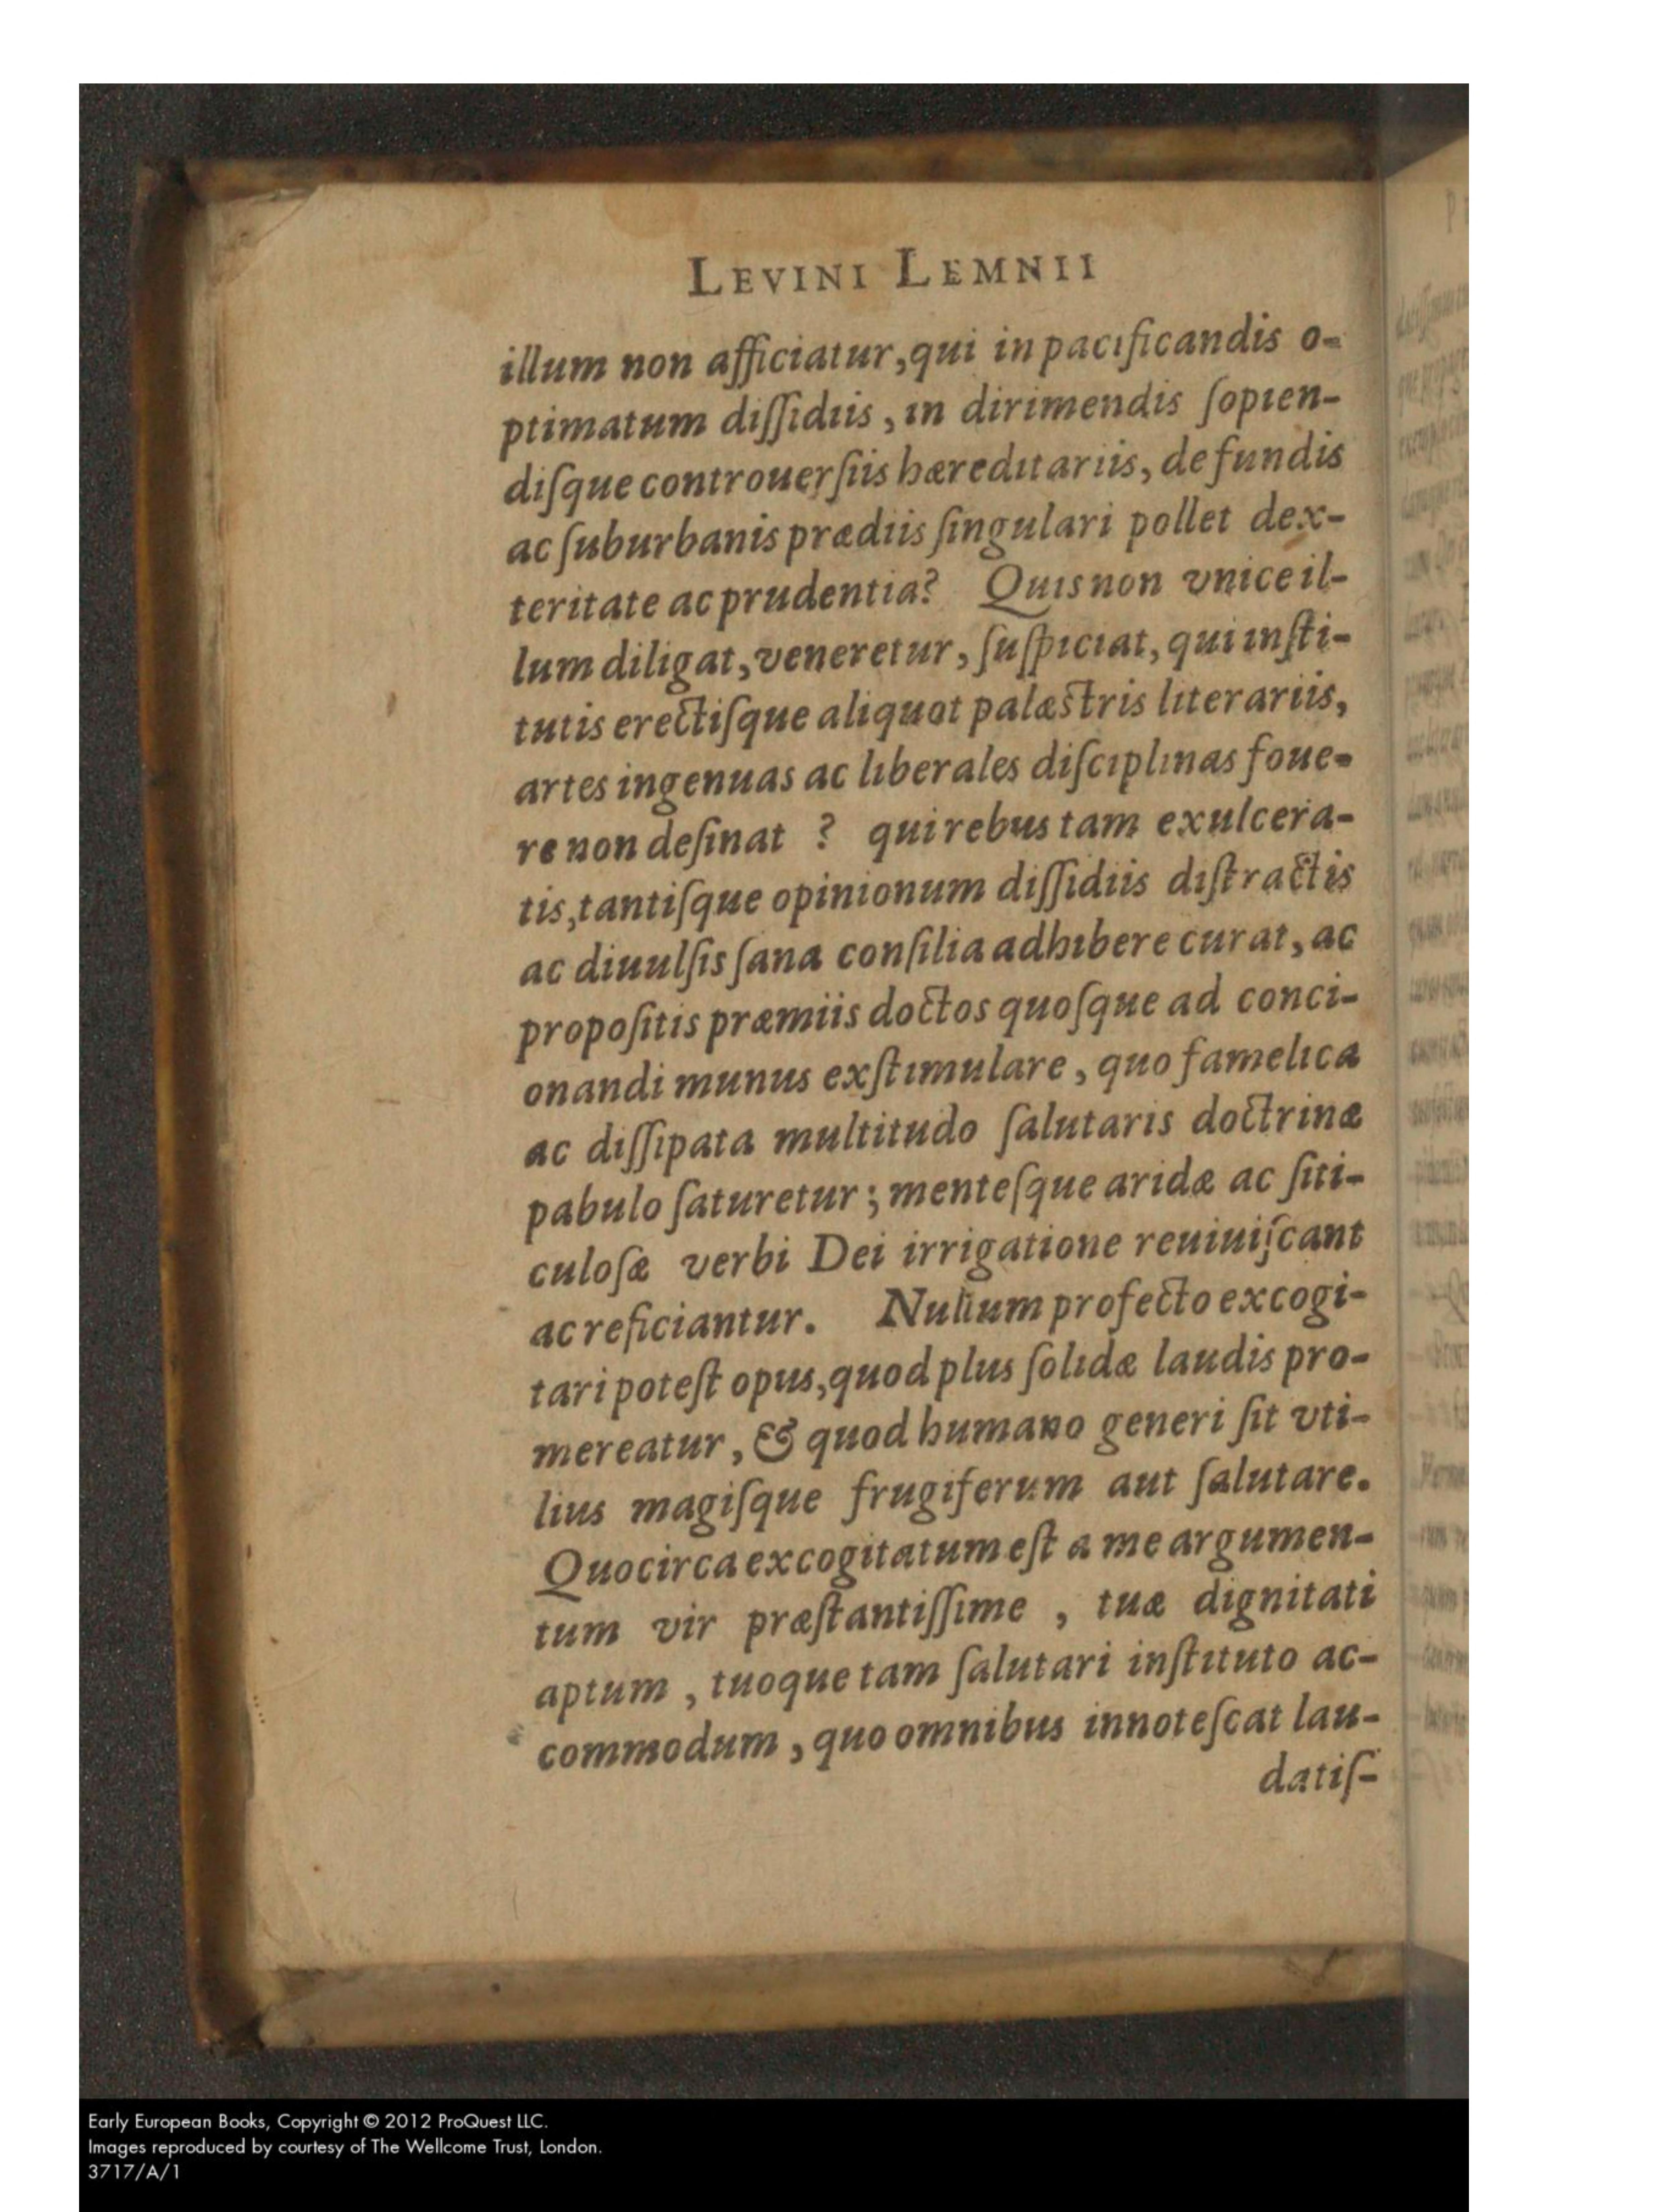 LEVINI LEMNII
illum non afficiatur, qui in pacificandis o-
ptimatum diſſidiis, in dirimendis ſopien-
diſque controuerſiis hæreditariis, de fundis
ac ſuburbanis prædiis ſingulari pollet dex-
teritate ac prudentia? Quis non vnice il-
lum diligat, veneretur, ſuſpiciat, qui inſti-
tutis erectiſque aliquot palæstris literariis,
artes ingenuas ac liberales diſciplinas foue-
re non deſinat ? qui rebus tam exulcera-
tis, tantiſque opinionum diſſidiis diſtractis
ac diuulſis ſana conſilia adhibere curat, ac
propoſitis præmiis doctos quoſque ad conci-
onandi munus exſtimulare, quo famelica
ac diſſipata multitudo ſalutaris doctrinæ
pabulo ſaturetur; menteſque aridæ ac ſiti-
culoſæ verbi Dei irrigatione reuiuiſcant
ac reficiantur. Nullum profecto excogi-
tari poteſt opus, quod plus ſolidæ laudis pro-
mereatur, & quod humano generi ſit vti-
lius magiſque frugiferum aut ſalutare.
Quocirca excogitatum eſt a me argumen-
tum vir præſtantiſſime , tuæ dignitati
aptum , tuoque tam ſalutari inſtituto ac-
commodum , quo omnibus innoteſcat lau-
datiſ-
Early European Books, Copyright © 2012 ProQuest LLC.
Images reproduced by courtesy of The Wellcome Trust, London.
3717/A/1